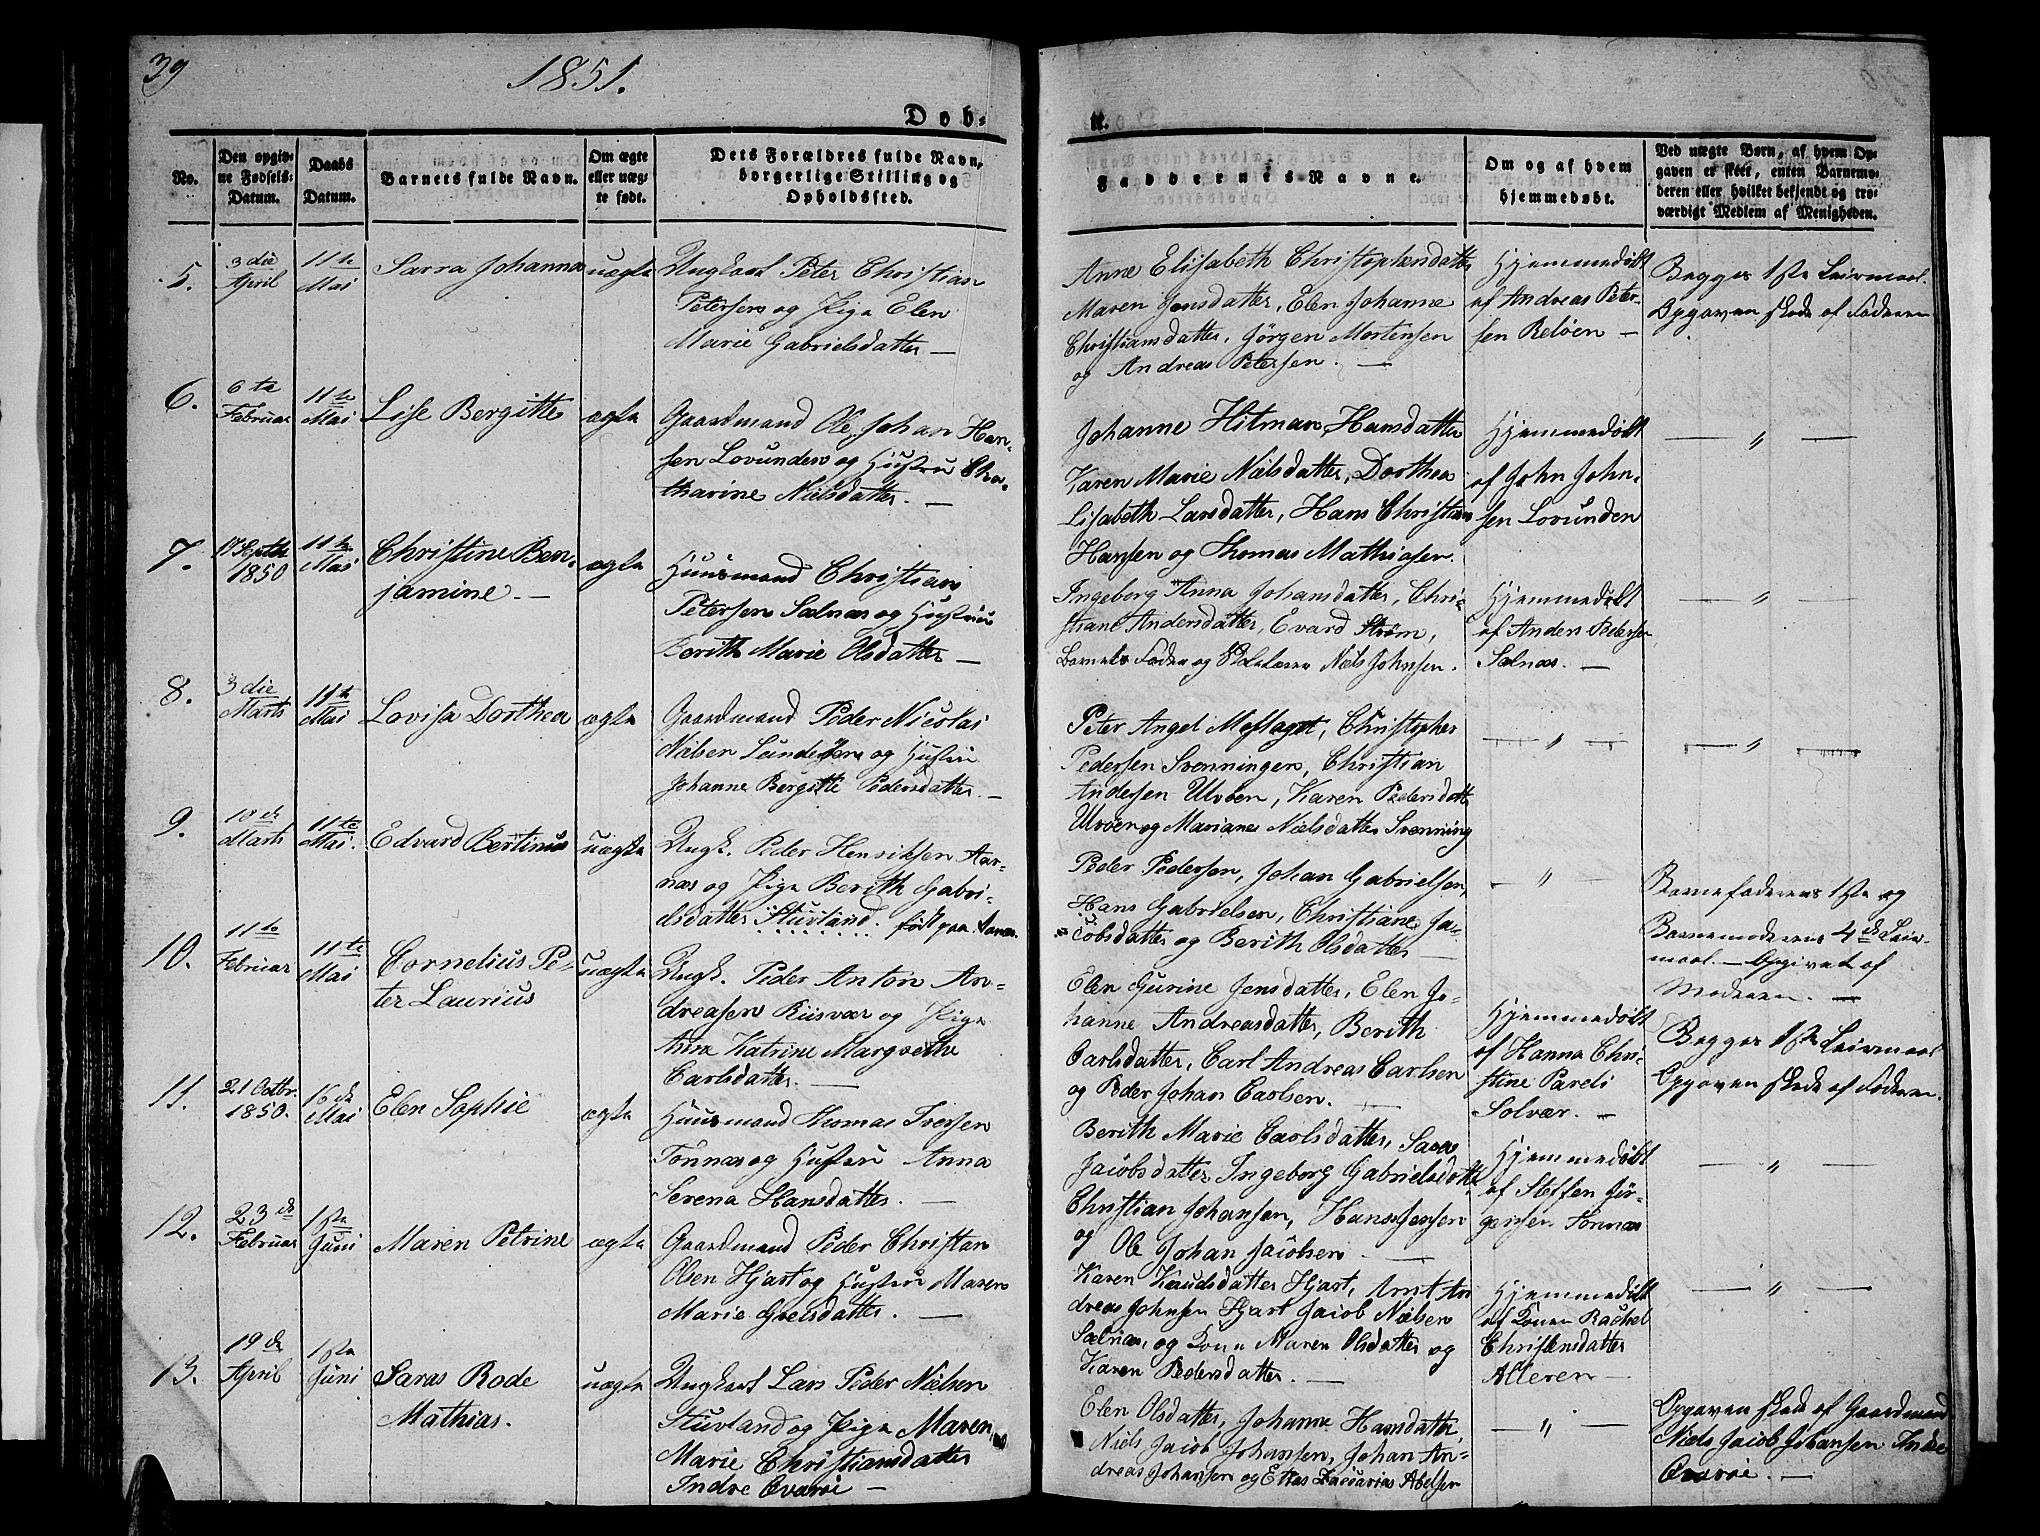 39
1851.
Døb-
te.
No.
Den opgiv-
ne Fødsels-
Datum.
Daabs
Datum.
Barnets fulde Navn.
Om ægte
eller uæg-
te født.
Dets Forældres fulde Navn,
borgerlige Stilling og
Opholdssted.
Faddernes Navne.
Om og af hvem
hjemmedøbt.
Ved uægte Børn, af hvem Op-
gaven er skeet, enten Barnemo-
deren eller hvilket bekjendt og tro-
værdigt Medlem af Menigheden.
5.
3die
April
11te
Mai
Sarra Johanna
uægte
Ungkarl Peter Christian
Petersen og Pige Elen
Marie Gabrielsdatter —
Anne Elisabeth Christophersdatter
Maren Jensdatter, Elen Johanne
Christiansdatter, Jørgen Mortensen
og Andreas Petersen. —
Hjemmedøbt
af Andreas Peter-
sen Reløen —
Begges 1ste Leiermaal.
Opgaven skede af Faderen
6.
6te
Februar
11te
Mai
Lise Bergitte
ægte
Gaardmand Ole Johan Han-
sen Lovunden og Hustru Cha-
tharine Nielsdatter. —
Johanne Hitman Hansdatter
Karen Marie Nielsdatter, Dorthea
Lisabeth Larsdatter, Hans Christian
Hansen og Thomas Mathiasen.
Hjemmedøbt
af John John-
sen Lovunden
— " —
7.
17 Septbr
1850
11te
Mai
Christine Ben-
jamine. —
ægte
Huusmand Christian
Petersen Selnæs og Hustru
Berith Marie Olsdatter —
Ingeborg Anna Johansdatter, Chri-
stiane Andersdatter, Evard Strøm,
Barnets Fader og Niels Johnsen.
Hjemmedøbt
af Anders Pedersen
Selnæs. —
— " —
8.
3die
Marts
11te
Mai
Lovisa Dorthea
ægte
Gaardmand Peder Nicolai
Nielsen Sundøen og Hustru
Johanne Bergitte Pedersdatter. —
Peter Angel Meslaget, Christopher
Pedersen Svenningen, Christian
Andersen Ulvøen, Karen Pedersdatter
Ulvøen og Mariane Nielsdatter Svenning
— " —
— " —
9.
10de
Marts
11te
Mai.
Edvard Bertinus
uægte
Ungk. Peder Henriksen Aar-
næs og Pige Berith Gabri-
elsdatter Stuvland. født paa Aarnæs.
Peder Pedersen, Johan Gabrielsen,
Hans Gabrielsen, Christiane Ja-
cobsdatter og Berith Olsdatter
— " —
Barnefaderens 1ste og
Barnemoderens 4de Leier-
maal. — Opgivet af
Moderen. —
10.
11te
Februar
11te
Mai
Cornelius Pe-
ter Laurius
uægte
Ungk. Peder Anton An-
dreasen Risvær og Pige
Anne Katrine Margrethe
Carlsdatter. —
Elen Gurine Jensdatter, Elen Jo-
hanne Andreasdatter, Berith
Carlsdatter, Carl Andreas Carlsen
og Peder Johan Carlsen. —
Hjemmedøbt
af Hanna Chri-
stine Pareli
Solvær. —
Begges 1ste Leiermaal
Opgaven skede af Faderen.
11.
21 Octbr.
1850.
16de
Mai
Elen Sophie
ægte
Huusmand Thomas Iversen
Tonnæs og Hustru Anna
Serena Hansdatter. —
Berith Marie Carlsdatter, Sara
Jacobsdatter Ingeborg Gabrielsdatter
Christian Johansen, Hans Jensen
og Ole Johan Jacobsen —
Hjemmedøbt
af Steffen Jør-
gensen Tonnæs
— " —
12.
23de
Februar
1ste
Juni
Maren Petrine
ægte
Gaardmand Peder Christian
Olsen Hjart og Hustru Maren
Marie Joelsdatter. —
Karen Knudsdatter Hjart, Arnt An
dreas Johnsen Hjart Jacob Nielsen
Selnæs, og Kone Maren Olsdatter og
Karen Pedersdatter. —
Hjemmedøbt
af Konen Rachel
Christensdatter
Alteren —
— " —
13.
19de
April
1ste
Juni
Saras Rode
Mathias.
uægte
Ungkarl Lars Peder Nielsen
Stuvland og Pige Maren
Marie Christiansdatter
Indre Qvarøe —
Elen Olsdatter, Johanne Hansdatter,
Niels Jacob Johansen, Johan An-
dreas Johansen og Zacarias Abelsen
— " —
Opgaven skede af Gaardmand
Niels Jacob Johansen Indre
Qvarøe. —